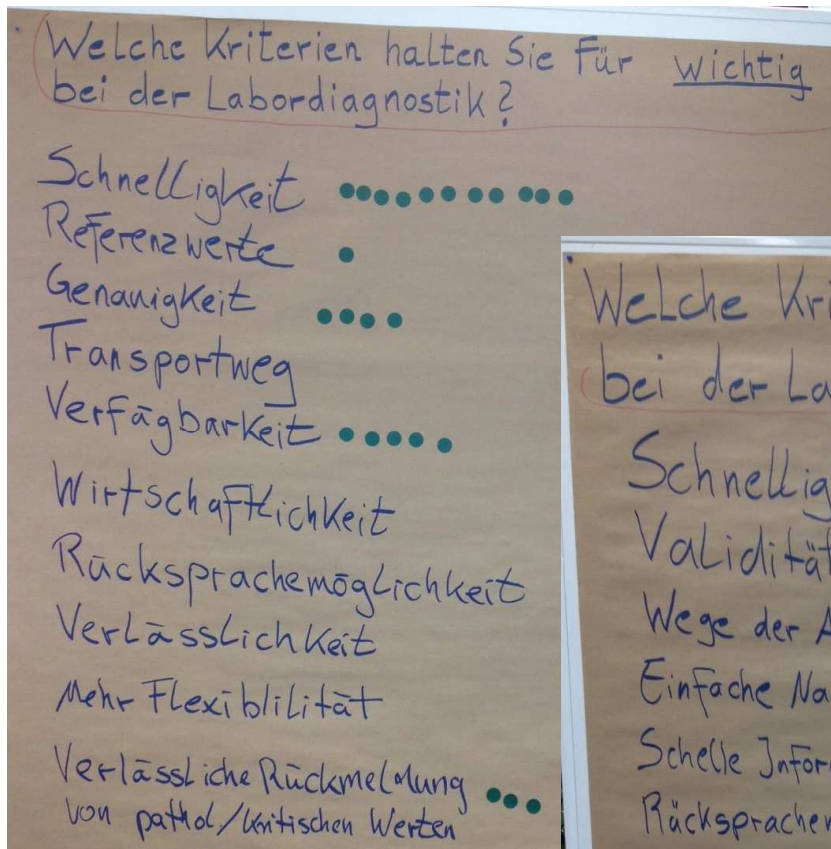 Welche Kriterien halten Sie für wichtig
bei der Labordiagnostik?
Schnelligkeit
Referenzwerte
Genauigkeit
Transportweg
Verfügbarkeit
Wirtschaftlichkeit
Rücksprachemöglichkeit
Verlässlichkeit
Mehr Flexiblilität
Verlässliche Rückmeldung
von pathol/kritischen Werten
Welche Kri
bei der La
Schnellig
Validität
Wege der A
Einfache Na
Schelle Infor
Rücksprachen